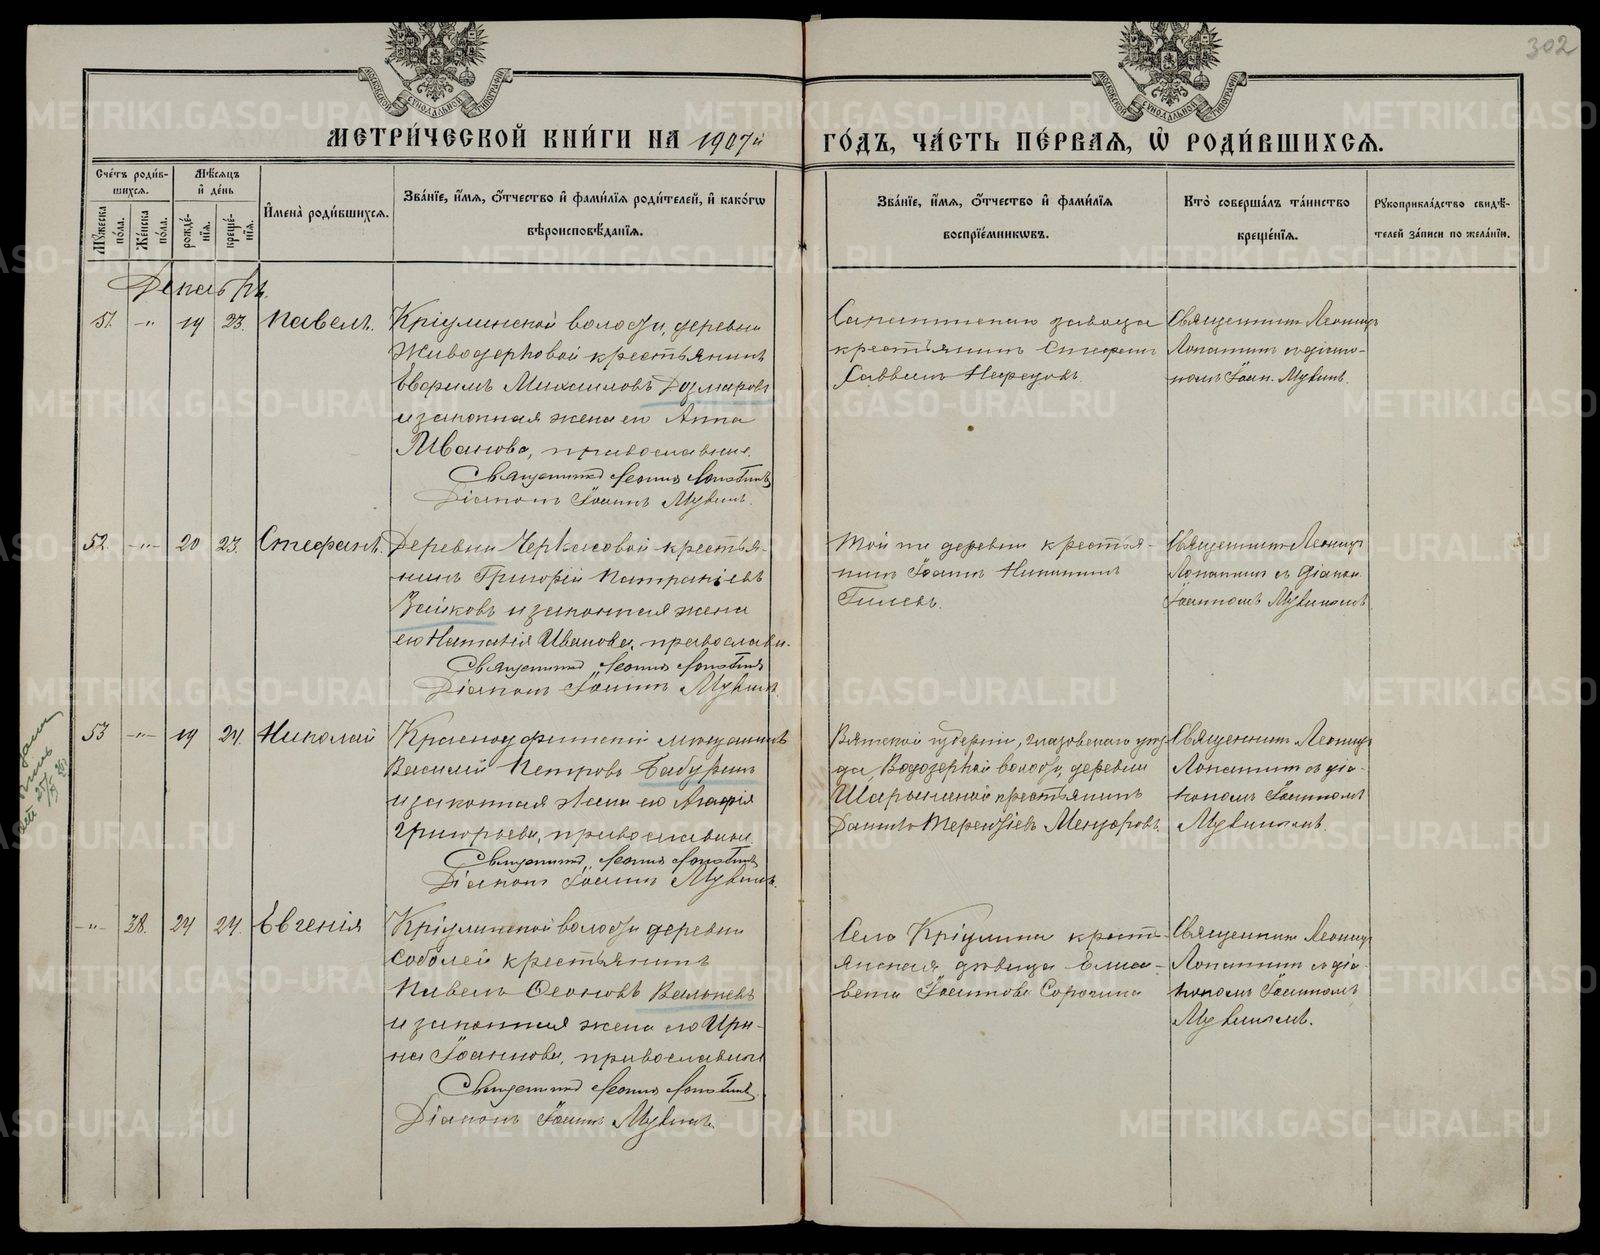 302
МОСКОВСКОЙ СУНОДАЛЬНОЙ ТИПОГРАФІИ
МОСКОВСКОЙ СУНОДАЛЬНОЙ ТИПОГРАФІИ
МЕТРИ́ЧЕСКОЙ КНИ́ГИ НА 1907й ГО́ДЪ, ЧА́СТЬ ПЕ́РВАѦ, Ѡ҆ РОДИ́ВШИХСѦ.
Сче́тъ роди́в-
шихсѧ.
Мѣ́сѧцъ
и҆ де́нь
Мꙋ́жеска по́ла.
Же́нска по́ла.
рожде́-
нїѧ.
креще́-
нїѧ.
И҆мена̀ роди́вшихсѧ.
Зва́нїе, и҆́мѧ, ѻ҆́тчество и҆ фами́лїѧ роди́телей, и҆ како́гѡ
вѣроисповѣ́данїѧ.
Зва́нїе, и҆́мѧ, ѻ҆́тчество и҆ фами́лїѧ
воспрїе́мникѡвъ.
Кто̀ соверша́лъ та́инство
креще́нїѧ.
Рꙋкоприкла́дство свидѣ́-
телей за́писи по жела́нїю.
Декабрь.
51. -"- 19 23. Павелъ.
Кріулинской волости, деревни
Живодерковой крестьянинъ
Евфимъ Михаиловъ
и законная жена его Анна
Иванова, православные.
Священникъ Леонидъ Лопатинъ
Діаконъ Іоаннъ Мувинъ.
завода
крестьянинъ Стефанъ
Саввинъ Нефедовъ.
Священникъ Леонидъ
Лопатинъ съ діако-
номъ Іоан. Мувинъ.
52. -"- 20 23. Стефанъ.
Деревни Черкасовой крестья-
нинъ Григорій Патракіевъ
Зайковъ и законная жена
его Наталія Иванова, православн.
Священникъ Леонидъ Лопатинъ
Діаконъ Іоаннъ Мувинъ.
Той же деревни крестья-
нинъ Іоаннъ Никитинъ
Гилевъ.
Священникъ Леонидъ
Лопатинъ съ діакон
Іоанномъ Мувиномъ.
53 -"- 19 24. Николай
Красноуфимскій мѣщанинъ
Василій Петровъ Бабушкинъ
и законная жена его Агафія
Григорьева, православные.
Священникъ Леонидъ Лопатинъ
Діаконъ Іоаннъ Мувинъ.
Вятской губерніи, Глазовскаго уѣз-
да, волости, деревни
крестьянинъ
Терентіевъ
Священникъ Леонидъ
Лопатинъ съ діа-
кономъ Іоанномъ
Мувиномъ.
-"- 38. 24 24. Евгенія
Кріулинской волости деревни
Соболей крестьянинъ
Павелъ
и законная жена его Ири-
на Іоаннова, православные
Священникъ Леонидъ Лопатинъ
Діаконъ Іоаннъ Мувинъ.
Села Кріулина кресть-
янская дѣвица Елиса-
вета Іоаннова Сорокина
Священникъ Леонидъ
Лопатинъ съ діа-
кономъ Іоанномъ
Мувиномъ.
METRIKI.GASO-URAL.RU